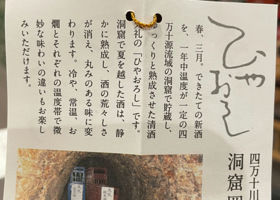 ひやおろし
春、三月。できたての新酒
を、一年中温度が一定の四
万十源流域の洞窟で貯蔵し、
じっくりと熟成させた清酒
礼の「ひやおろし」です。
洞窟で夏を越した酒は、静
かに熟成し、酒の荒々しさ
が消え、丸みのある味に変
わります。冷や、常温、お
燗とそれぞれの温度帯で微
妙な味わいの違いもお楽し
みいただけます。
四万十川
洞窟四